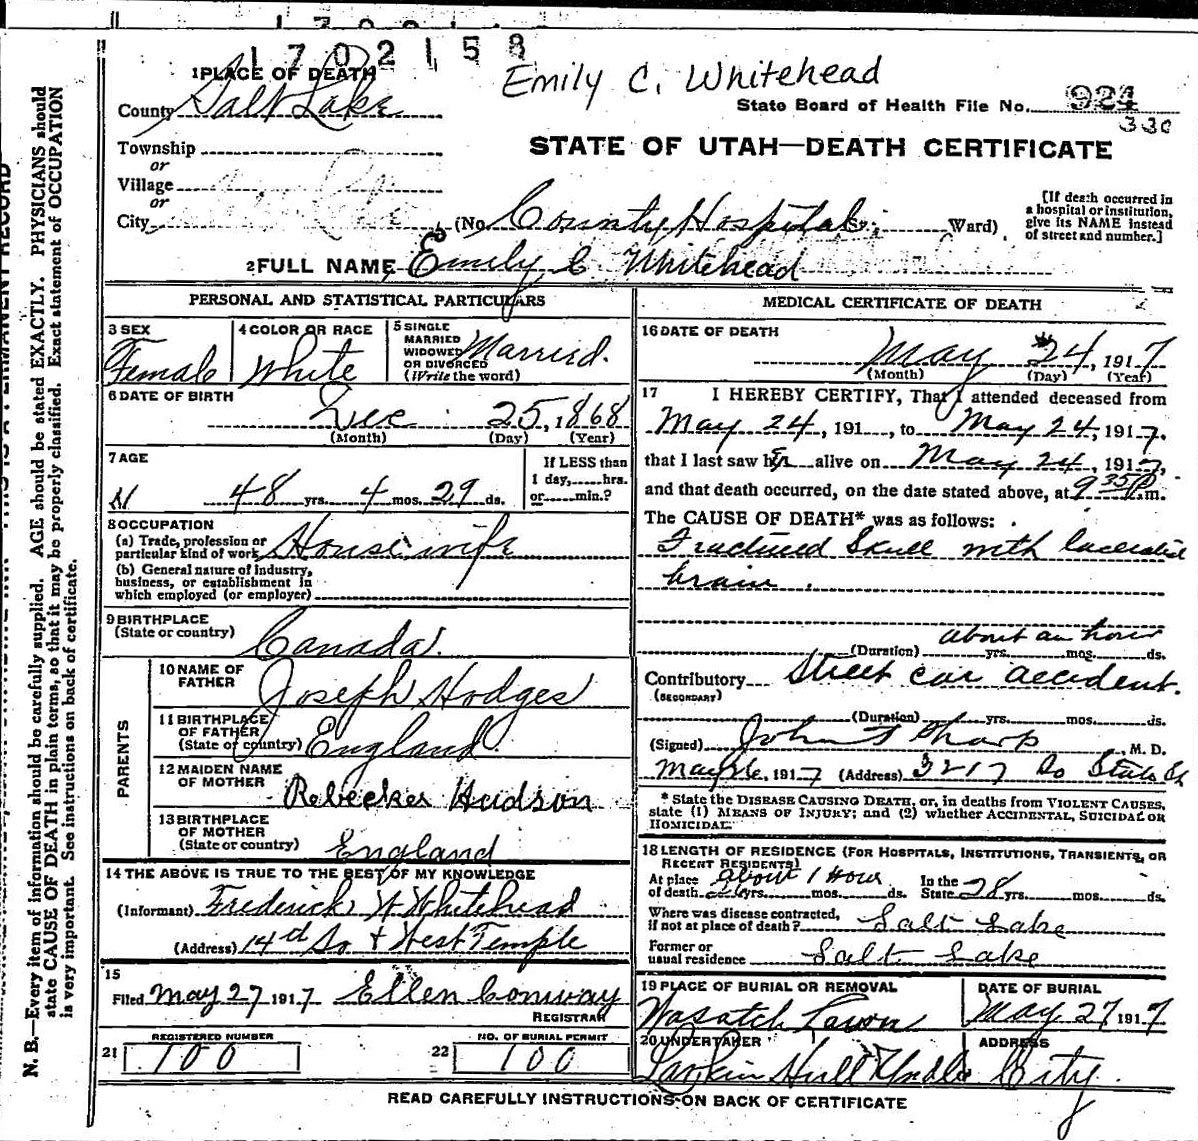 1702158
Emily C. Whitehead
1 PLACE OF DEATH
County Salt Lake
State Board of Health File No. 924
330
STATE OF UTAH—DEATH CERTIFICATE
Township
or
Village
or
City (No. County Hospital St.; Ward)
[If death occurred in
a hospital or institution,
give its NAME instead
of street and number.]
2 FULL NAME Emily C Whitehead
PERSONAL AND STATISTICAL PARTICULARS
3 SEX
Female
4 COLOR OR RACE
White
5 SINGLE
MARRIED
WIDOWED
OR DIVORCED
(Write the word)
Married.
6 DATE OF BIRTH
Dec 25, 1868
(Month) (Day) (Year)
7 AGE
48 yrs. 4 mos. 29 ds.
If LESS than
1 day, hrs.
or min.?
8 OCCUPATION
(a) Trade, profession or
particular kind of work Housewife
(b) General nature of industry,
business, or establishment in
which employed (or employer)
9 BIRTHPLACE
(State or country) Canada.
PARENTS
10 NAME OF
FATHER Joseph Hodges
11 BIRTHPLACE
OF FATHER
(State or country) England
12 MAIDEN NAME
OF MOTHER Rebecker Hudson
13 BIRTHPLACE
OF MOTHER
(State or country) England
14 THE ABOVE IS TRUE TO THE BEST OF MY KNOWLEDGE
(Informant) Frederick W Whitehead
(Address) 14th So + West Temple
15
Filed May 27 1917 Ellen Conway
REGISTRAR
REGISTERED NUMBER
21 100
NO. OF BURIAL PERMIT
22 100
MEDICAL CERTIFICATE OF DEATH
16 DATE OF DEATH
May 24, 1917
(Month) (Day) (Year)
17 I HEREBY CERTIFY, That I attended deceased from
May 24, 191 , to May 24, 1917.
that I last saw her alive on May 24, 1917,
and that death occurred, on the date stated above, at 9 35 P.m.
The CAUSE OF DEATH* was as follows:
Fractured Skull with lacerated
brain.
about an hour
(Duration) yrs. mos. ds.
Contributory Street car accident.
(SECONDARY)
(Duration) yrs. mos. ds.
(Signed) John F Sharp, M. D.
May 26, 1917 (Address) 3217 So State St
* State the DISEASE CAUSING DEATH, or, in deaths from VIOLENT CAUSES,
state (1) MEANS OF INJURY; and (2) whether ACCIDENTAL, SUICIDAL OR
HOMICIDAL.
18 LENGTH OF RESIDENCE (FOR HOSPITALS, INSTITUTIONS, TRANSIENTS, OR
RECENT RESIDENTS)
At place about 1 Hour In the
of death yrs. mos. ds. State 28 yrs. mos. ds.
Where was disease contracted,
if not at place of death? Salt Lake
Former or
usual residence Salt Lake
19 PLACE OF BURIAL OR REMOVAL
Wasatch Lawn
DATE OF BURIAL
May 27, 1917
20 UNDERTAKER
Larkin Hull
ADDRESS
City.
READ CAREFULLY INSTRUCTIONS ON BACK OF CERTIFICATE
N. B.—Every item of information should be carefully supplied. AGE should be stated EXACTLY. PHYSICIANS should
state CAUSE OF DEATH in plain terms, so that it may be properly classified. Exact statement of OCCUPATION
is very important. See instructions on back of certificate.